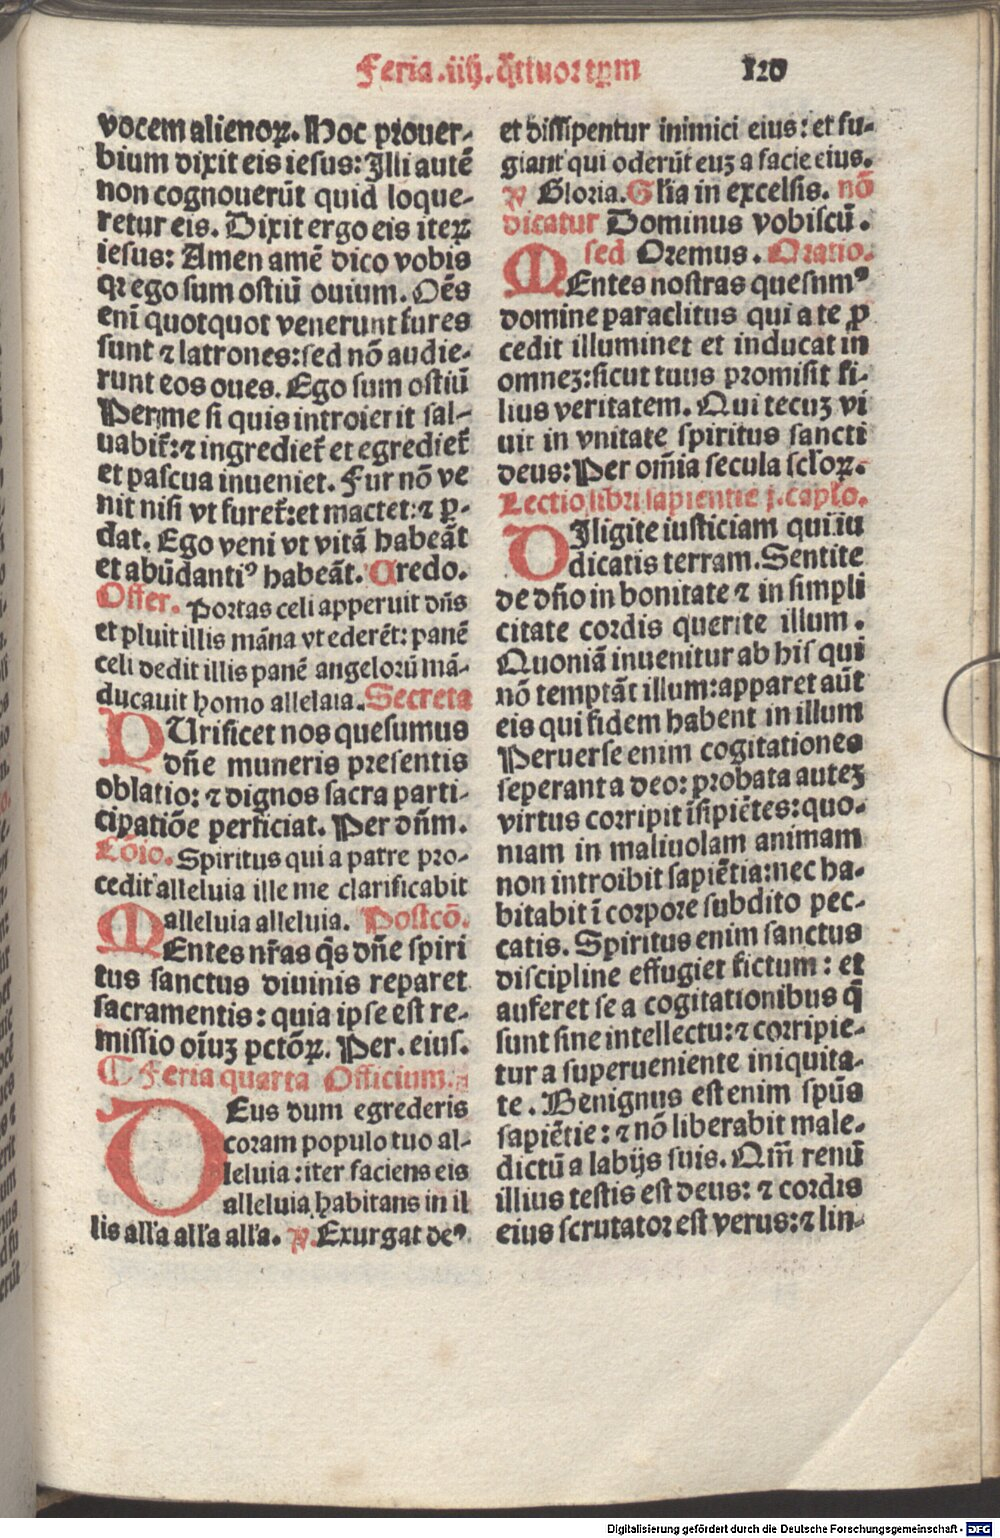 Feria .iiij. q̃ttuor tꝑm 120
vocem alienoꝝ. Hoc prouer-
bium dixit eis iesus: Illi autē
non cognouerūt quid loque-
retur eis. Dixit ergo eis iteꝝ
iesus: Amen amē dico vobis
qꝛ ego sum ostiū ouium. Oēs
eni quotquot venerunt fures
sunt ⁊ latrones: sed nō audie-
runt eos oues. Ego sum ostiū
Per me si quis introierit sal-
uabit̃: ⁊ ingrediet̃ et egrediet̃
et pascua inueniet. Fur nō ve
nit nisi vt furet̃: et mactet: ⁊ ꝑ-
dat. Ego veni vt vitā habeāt
et abūdantiꝰ habeāt. Credo.
Offer. Portas celi apperuit dn̄s
et pluit illis māna vt ederēt: panē
celi dedit illis panē angelorū mā-
ducauit homo allelaia. Secreta
PUrificet nos quesumus
dn̄e muneris presentis
oblatio: ⁊ dignos sacra parti-
cipatiōe perficiat. Per dn̄m.
Cōio. Spiritus qui a patre pro-
cedit alleluia ille me clarificabit
alleluia alleluia. Postcō.
MEntes nr̄as q̄s dn̄e spiri
tus sanctus diuinis reparet
sacramentis: quia ipse est re-
missio oīuꝫ pctōꝝ. Per. eius.
¶ Feria quarta Officium.
DEus dum egrederis
coram populo tuo al-
leluia: iter faciens eis
alleluia habitans in il
lis all'a all'a all'a. ꝟ. Exurgat deꝰ
et dissipentur inimici eius: et fu-
giant qui oderūt euꝫ a facie eius.
ꝟ Gloria. Gl'ia in excelsis. nō
dicatur Dominus vobiscū.
sed Oremus. Oratio.
MEntes nostras quesumꝰ
domine paraclitus qui a te ꝓ
cedit illuminet et inducat in
omneꝫ: sicut tuus promisit fi-
lius veritatem. Qui tecuꝫ vi
uit in vnitate spiritus sancti
deus: Per om̄ia secula sclōꝝ.
Lectio libri sapientie j. caplo.
DIligite iusticiam qui iu
dicatis terram. Sentite
de dn̄o in bonitate ⁊ in simpli
citate cordis querite illum.
Quoniā inuenitur ab his qui
nō temptāt illum: apparet aūt
eis qui fidem habent in illum
Peruerse enim cogitationes
seperant a deo: probata auteꝫ
virtus corripit īsipiētes: quo-
niam in maliuolam animam
non introibit sapiētia: nec ha-
bitabit ī corpore subdito pec-
catis. Spiritus enim sanctus
discipline effugiet fictum: et
auferet se a cogitationibus q̄
sunt sine intellectu: ⁊ corripie-
tur a superueniente iniquita-
te. Benignus est enim spūs
sapiētie: ⁊ nō liberabit male-
dictū a labijs suis. Qm̄ renū
illius testis est deus: ⁊ cordis
eius scrutator est verus: ⁊ lin-
Digitalisierung gefördert durch die Deutsche Forschungsgemeinschaft - DFG